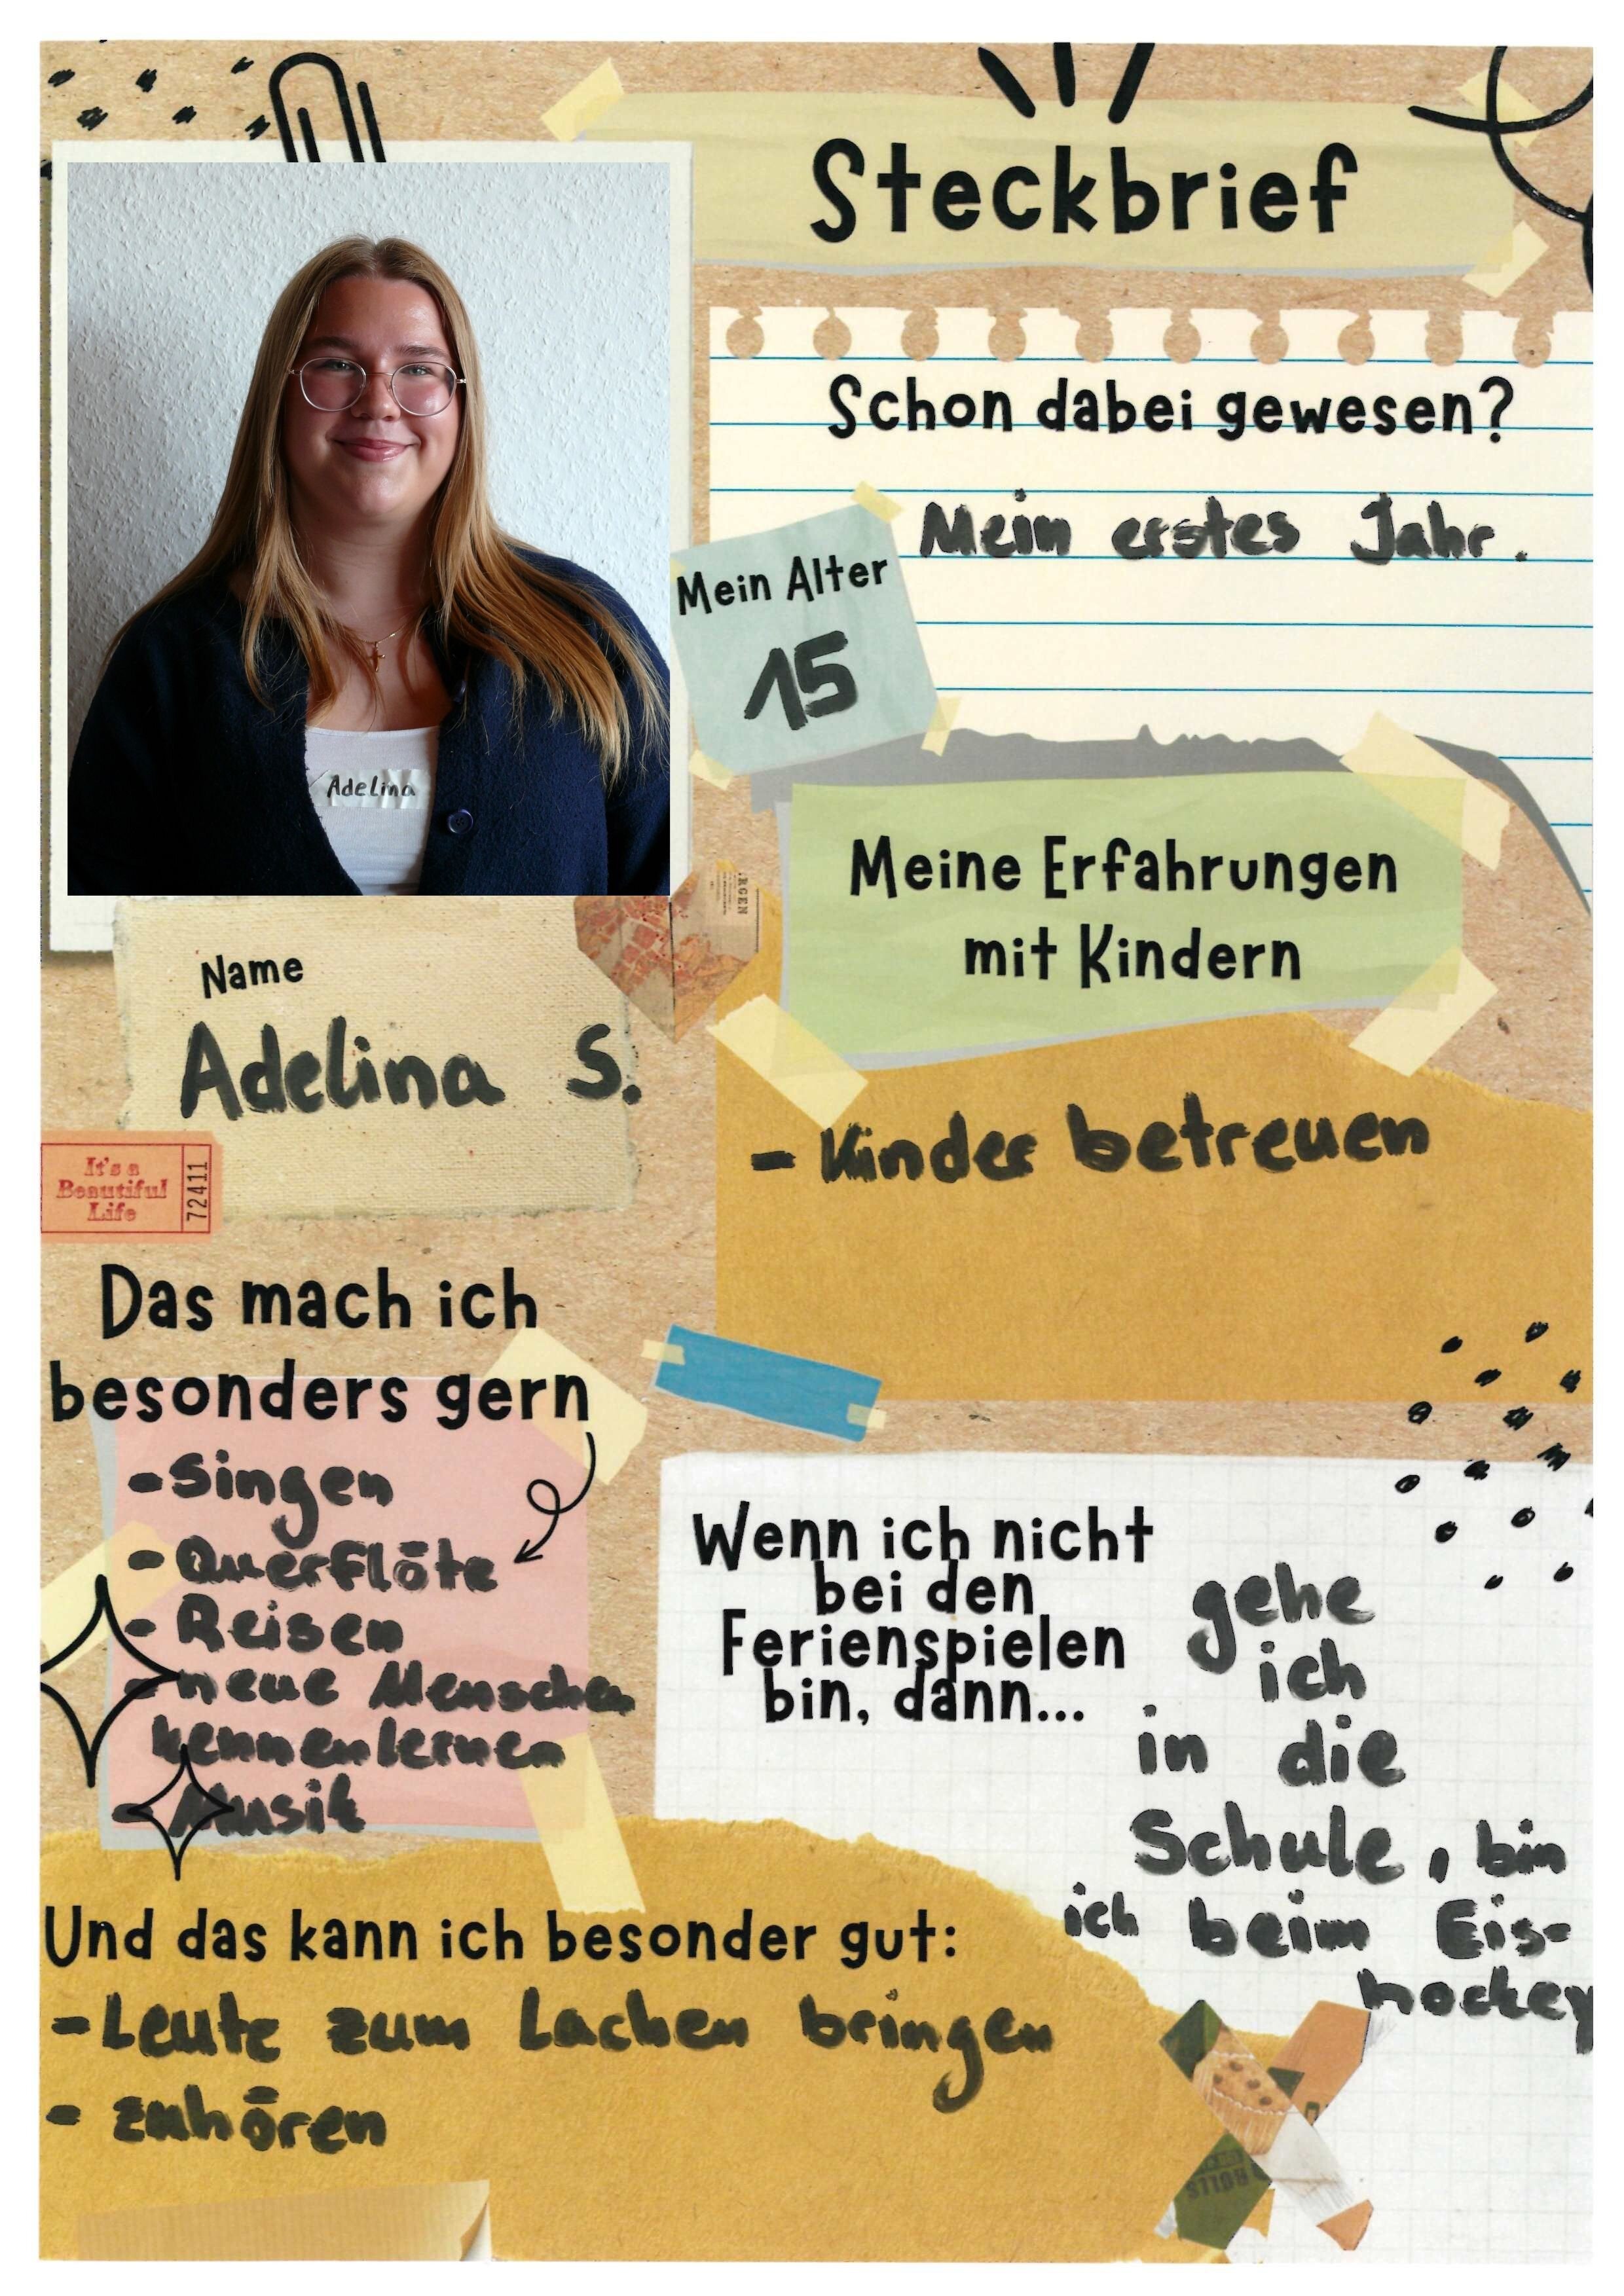 Steckbrief
Schon dabei gewesen?
Mein erstes Jahr.
Mein Alter
15
Adelina
Meine Erfahrungen
mit Kindern
- Kinder betreuen
Name
Adelina S.
It's a
Beautiful
Life
72411
Das mach ich
besonders gern
- Singen
- Querflöte
- Reisen
- neue Menschen
kennenlernen
- Musik
Wenn ich nicht
bei den
Ferienspielen
bin, dann...
gehe
ich
in die
Schule, bin
ich beim Eis-
hockey
Und das kann ich besonder gut:
- Leute zum Lachen bringen
- zuhören
ROLLS